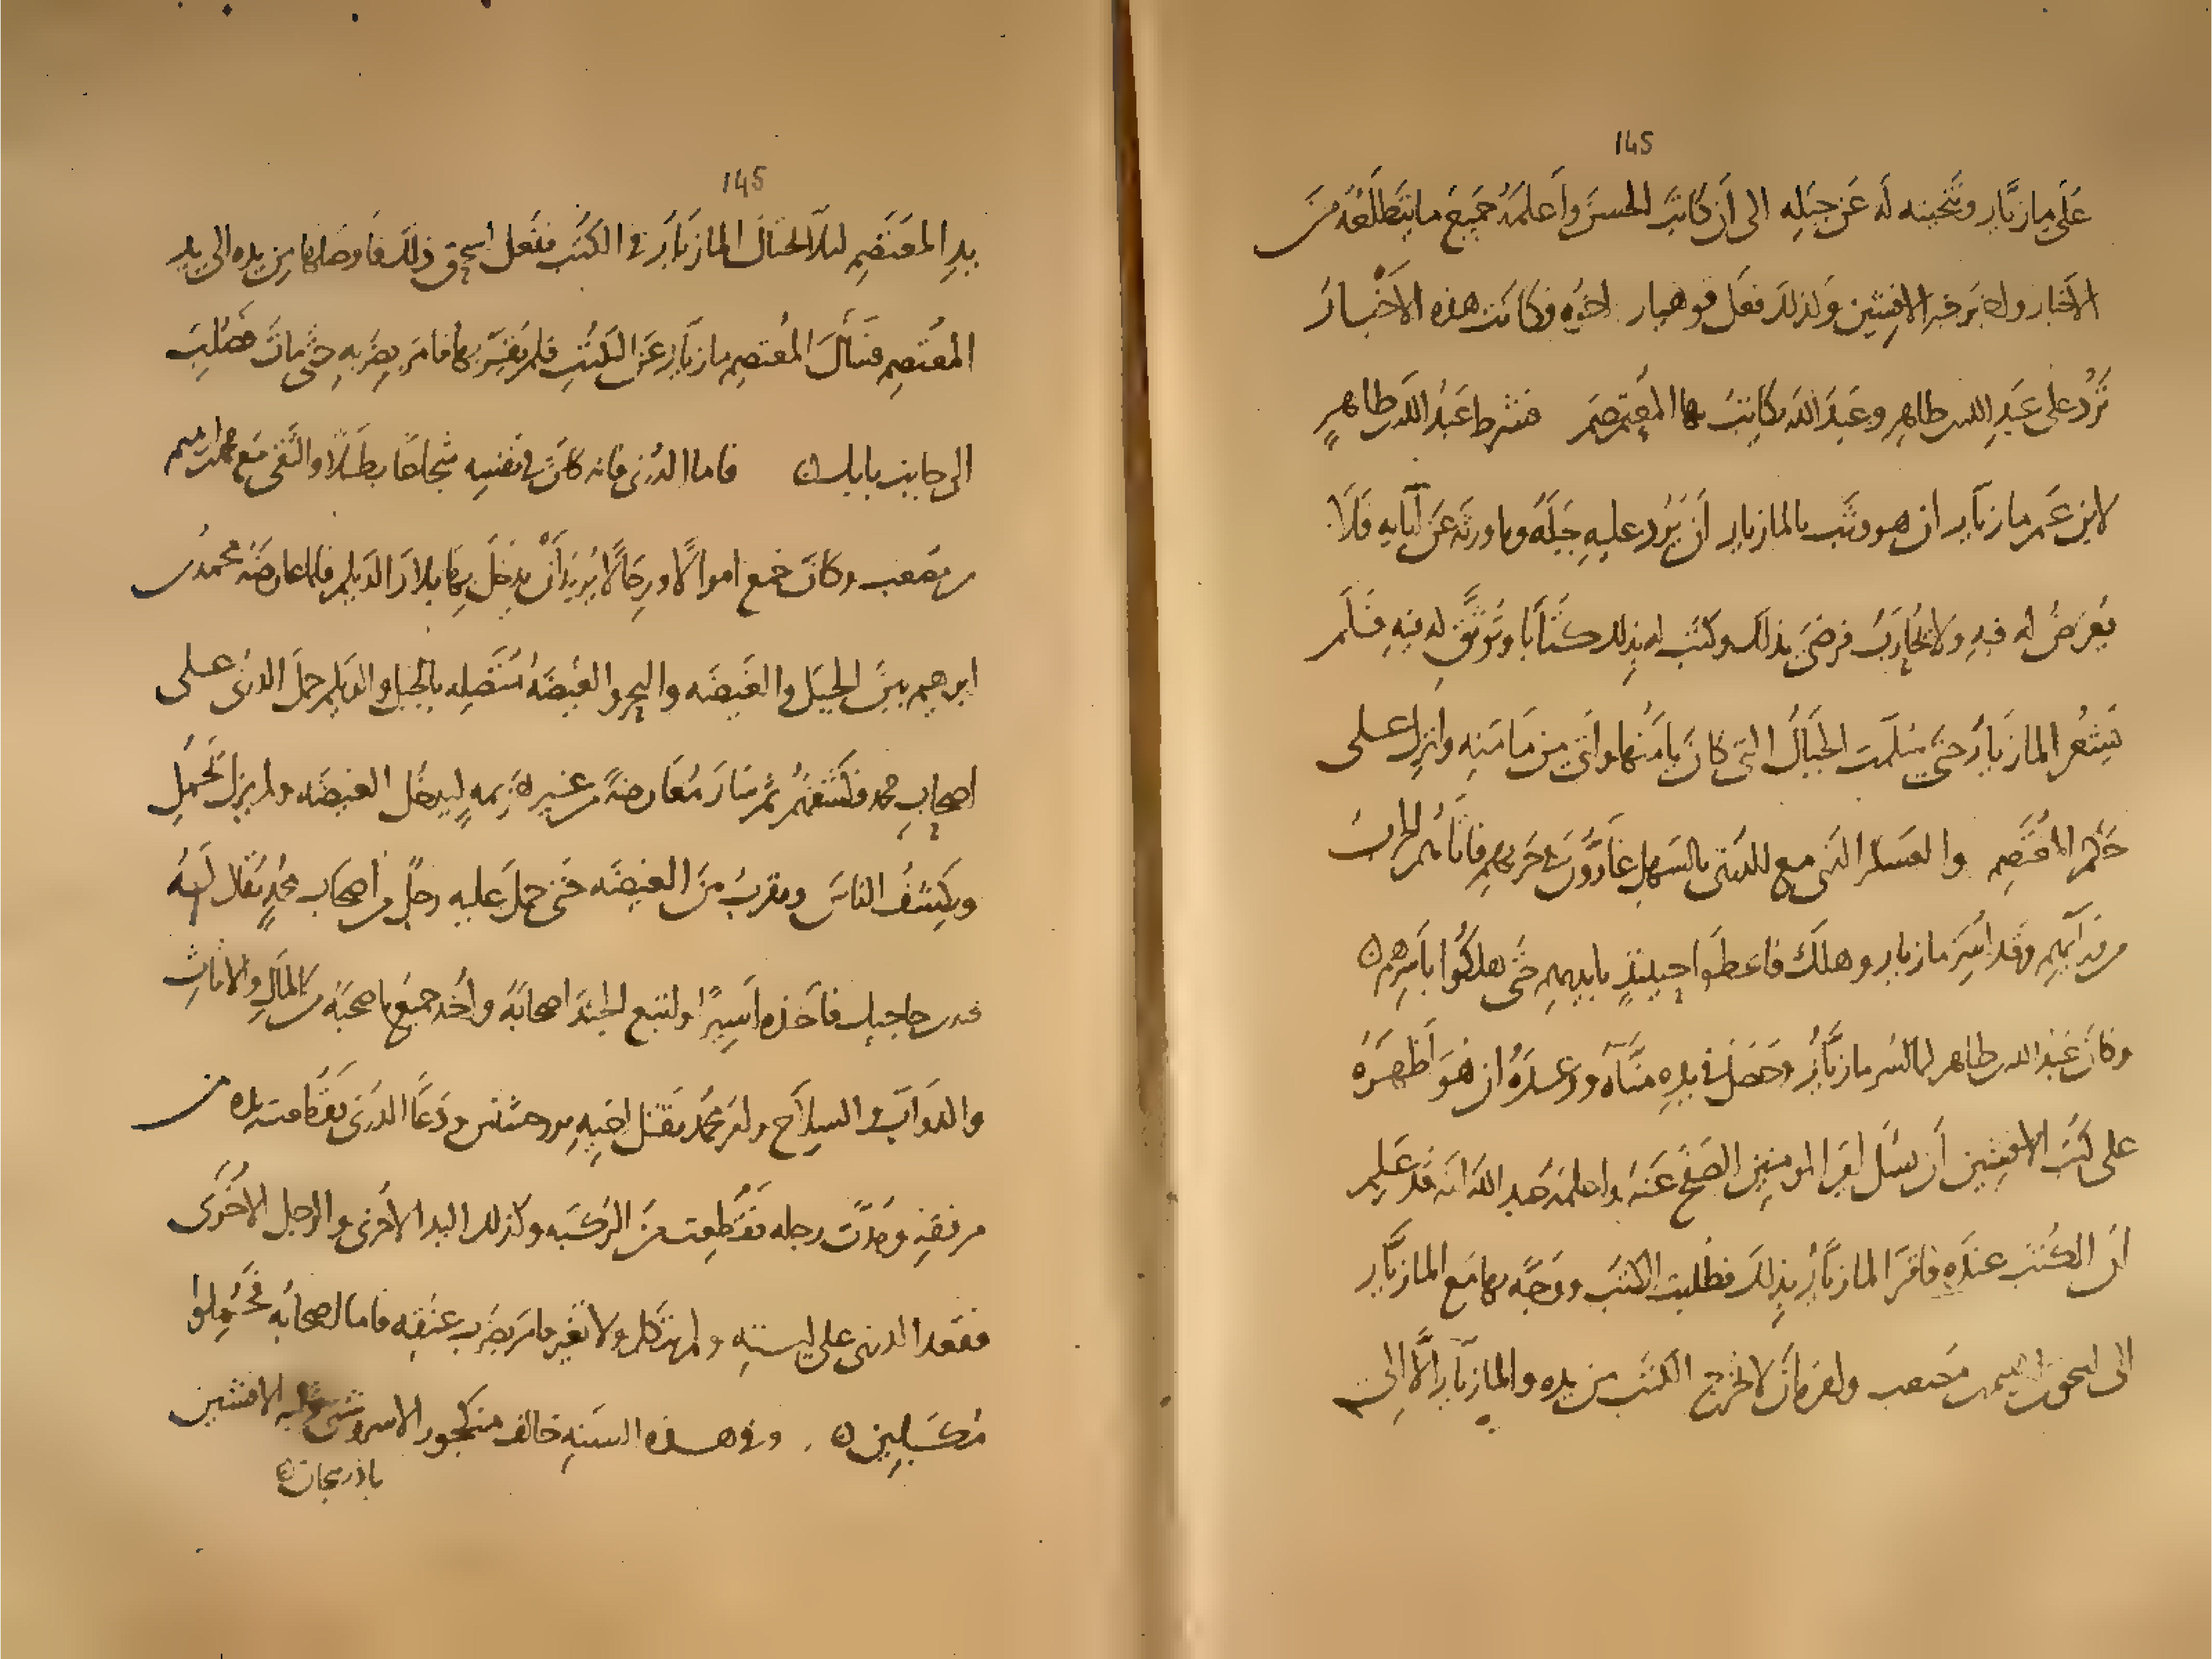 145
على مازيار وتنحيته له عن جبله الى أن كاتب الحسن وأعلمه جميع ما يتطلعه من
الاخبار ولاخبر خبر الافشين وكذلك فعل قوهيار اخوه فكانت هذه الاخبار
ترد على عبد الله بن طاهر وعبد الله يكاتب بها المعتصم فشرط عبد الله بن طاهر
لابن عم مازيار ان هو وثب بالمازيار أن يرد عليه جبله وما ورثه عن آبايه فلا
يعرض له فيه ولا يحارب فرضى بذلك وكتب له بذلك كتابا وتوثق له فيه فلم
يشعر المازيار حتى سلمت الجبال التي كان يامنها وأتى من مامنه وانزل على
حكم المعتصم والعسكر الذى مع الدرنى بالسهل غارون في حربهم فاتاهم
من ورآيهم وقد اسر مازيار وهلك فاعطوا حينيذ بايديهم حتى هلكوا باسرهم
وكان عبد الله بن طاهر لما اسر مازيار وحصل في يده مناه ووعده ان هو اظهره
على كتب الافشين أن يسل امير المومنين الصفح عنه واعلمه عبد الله انه قد علم
ان الكتب عنده فاقر المازيار بذلك فطلبت الكتب ووجه بها مع المازيار
الى اسحق بن ابرهيم بن مصعب وامره أن لا تخرج الكتب من يده والمازيار الا الى
145
يد المعتصم ليلا يحتال المازيار في الكتب ففعل اسحق ذلك فاوصلها من يده الى يد
المعتصم فسأل المعتصم مازيار عن الكتب فلم يقر بها فامر بضربه حتى مات فصلب
الى جانب بابك فاما الدرنى فانه كان في نفسه شجاعا بطلا والتقى مع محمد بن ابرهيم
بن مصعب وكان جمع اموالا ورجالا يريد أن يدخل بها بلاد الديلم فلما عارضه محمد بن
ابرهيم بين الجبل والغيضه والبحر والغيضه متصله بالجبل والديلم حمل الدرنى على
اصحاب محمد فكشفهم ثم سار معارضة من غير هزيمه ليدخل الغيضه ولم يزل يحمل
ويكشف الناس ويقرب من الغيضه حتى حمل عليه رجل من أصحاب محمد يقال له
فند بن حاجبه فأخذه أسيرا واتبع الجند اصحابه وأخذ جميع ما صحبه من المال والاثاث
والدواب والسلاح وامر محمد بقتل اخيه بزرجشنس ودعا الدرنى فقطعت يده من
مرفقه ومدت رجله فقطعت من الركبه وكذلك اليد الاخرى والرجل الاخرى
فقعد الدرنى على استه ولم يتكلم ولا تغير فامر بضرب عنقه فاما اصحابه فحملوا
مكبلين وفي هذه السنه خالف منكجور الاسروشنى الافشين
باذربيجان